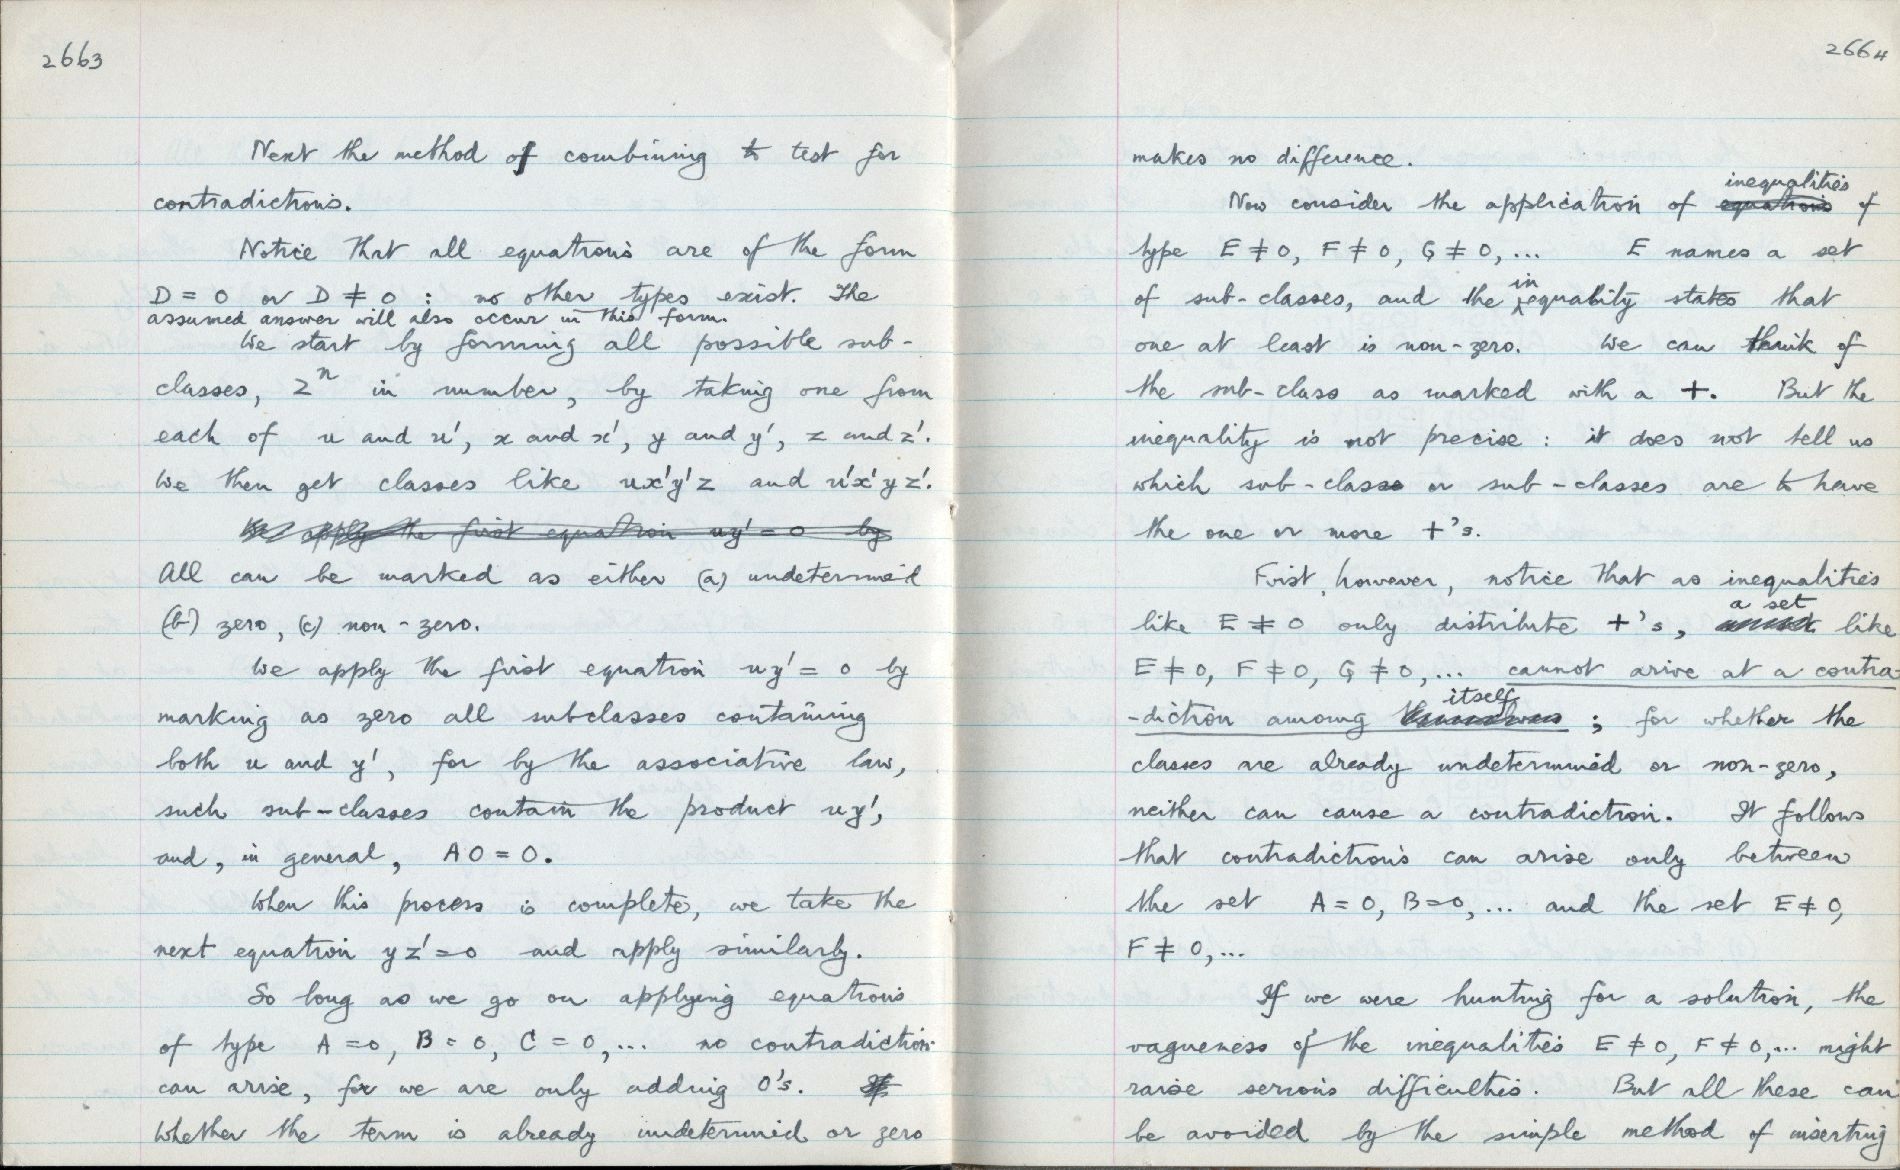 2663
Next the method of combining to test for
contradictions.
Notice that all equations are of the form
D = 0 or D ≠ 0 : no other types exist. The
assumed answer will also occur in this form.
We start by forming all possible sub-
classes, 2ⁿ in number, by taking one from
each of u and u', x and x', y and y', z and z'.
We then get classes like ux'y'z and u'x'yz'.
We apply the first equation uy' = 0 by
All can be marked as either (a) undetermined
(b) zero, (c) non-zero.
We apply the first equation uy' = 0 by
marking as zero all subclasses containing
both u and y', for by the associative law,
such sub-classes contain the product uy',
and, in general, A0 = 0.
When this process is complete, we take the
next equation yz' = 0 and apply similarly.
So long as we go on applying equations
of type A = 0, B = 0, C = 0,... no contradiction
can arise, for we are only adding 0's. If
Whether the term is already undetermined or zero
2664
makes no difference.
inequalities
Now consider the application of equations of
type E ≠ 0, F ≠ 0, G ≠ 0,... E names a set
of sub-classes, and the inequality states that
one at least is non-zero. We can think of
the sub-class as marked with a +. But the
inequality is not precise : it does not tell us
which sub-class or sub-classes are to have
the one or more +'s.
First, however, notice that as inequalities
like E ≠ 0 only distribute +'s, a set like
E ≠ 0, F ≠ 0, G ≠ 0,... cannot arive at a contra-
-diction among itself ; for whether the
classes are already undetermined or non-zero,
neither can cause a contradiction. It follows
that contradictions can arise only between
the set A = 0, B = 0,... and the set E ≠ 0,
F ≠ 0,...
If we were hunting for a solution, the
vagueness of the inequalities E ≠ 0, F ≠ 0,... might
raise serious difficulties. But all these can
be avoided by the simple method of inserting